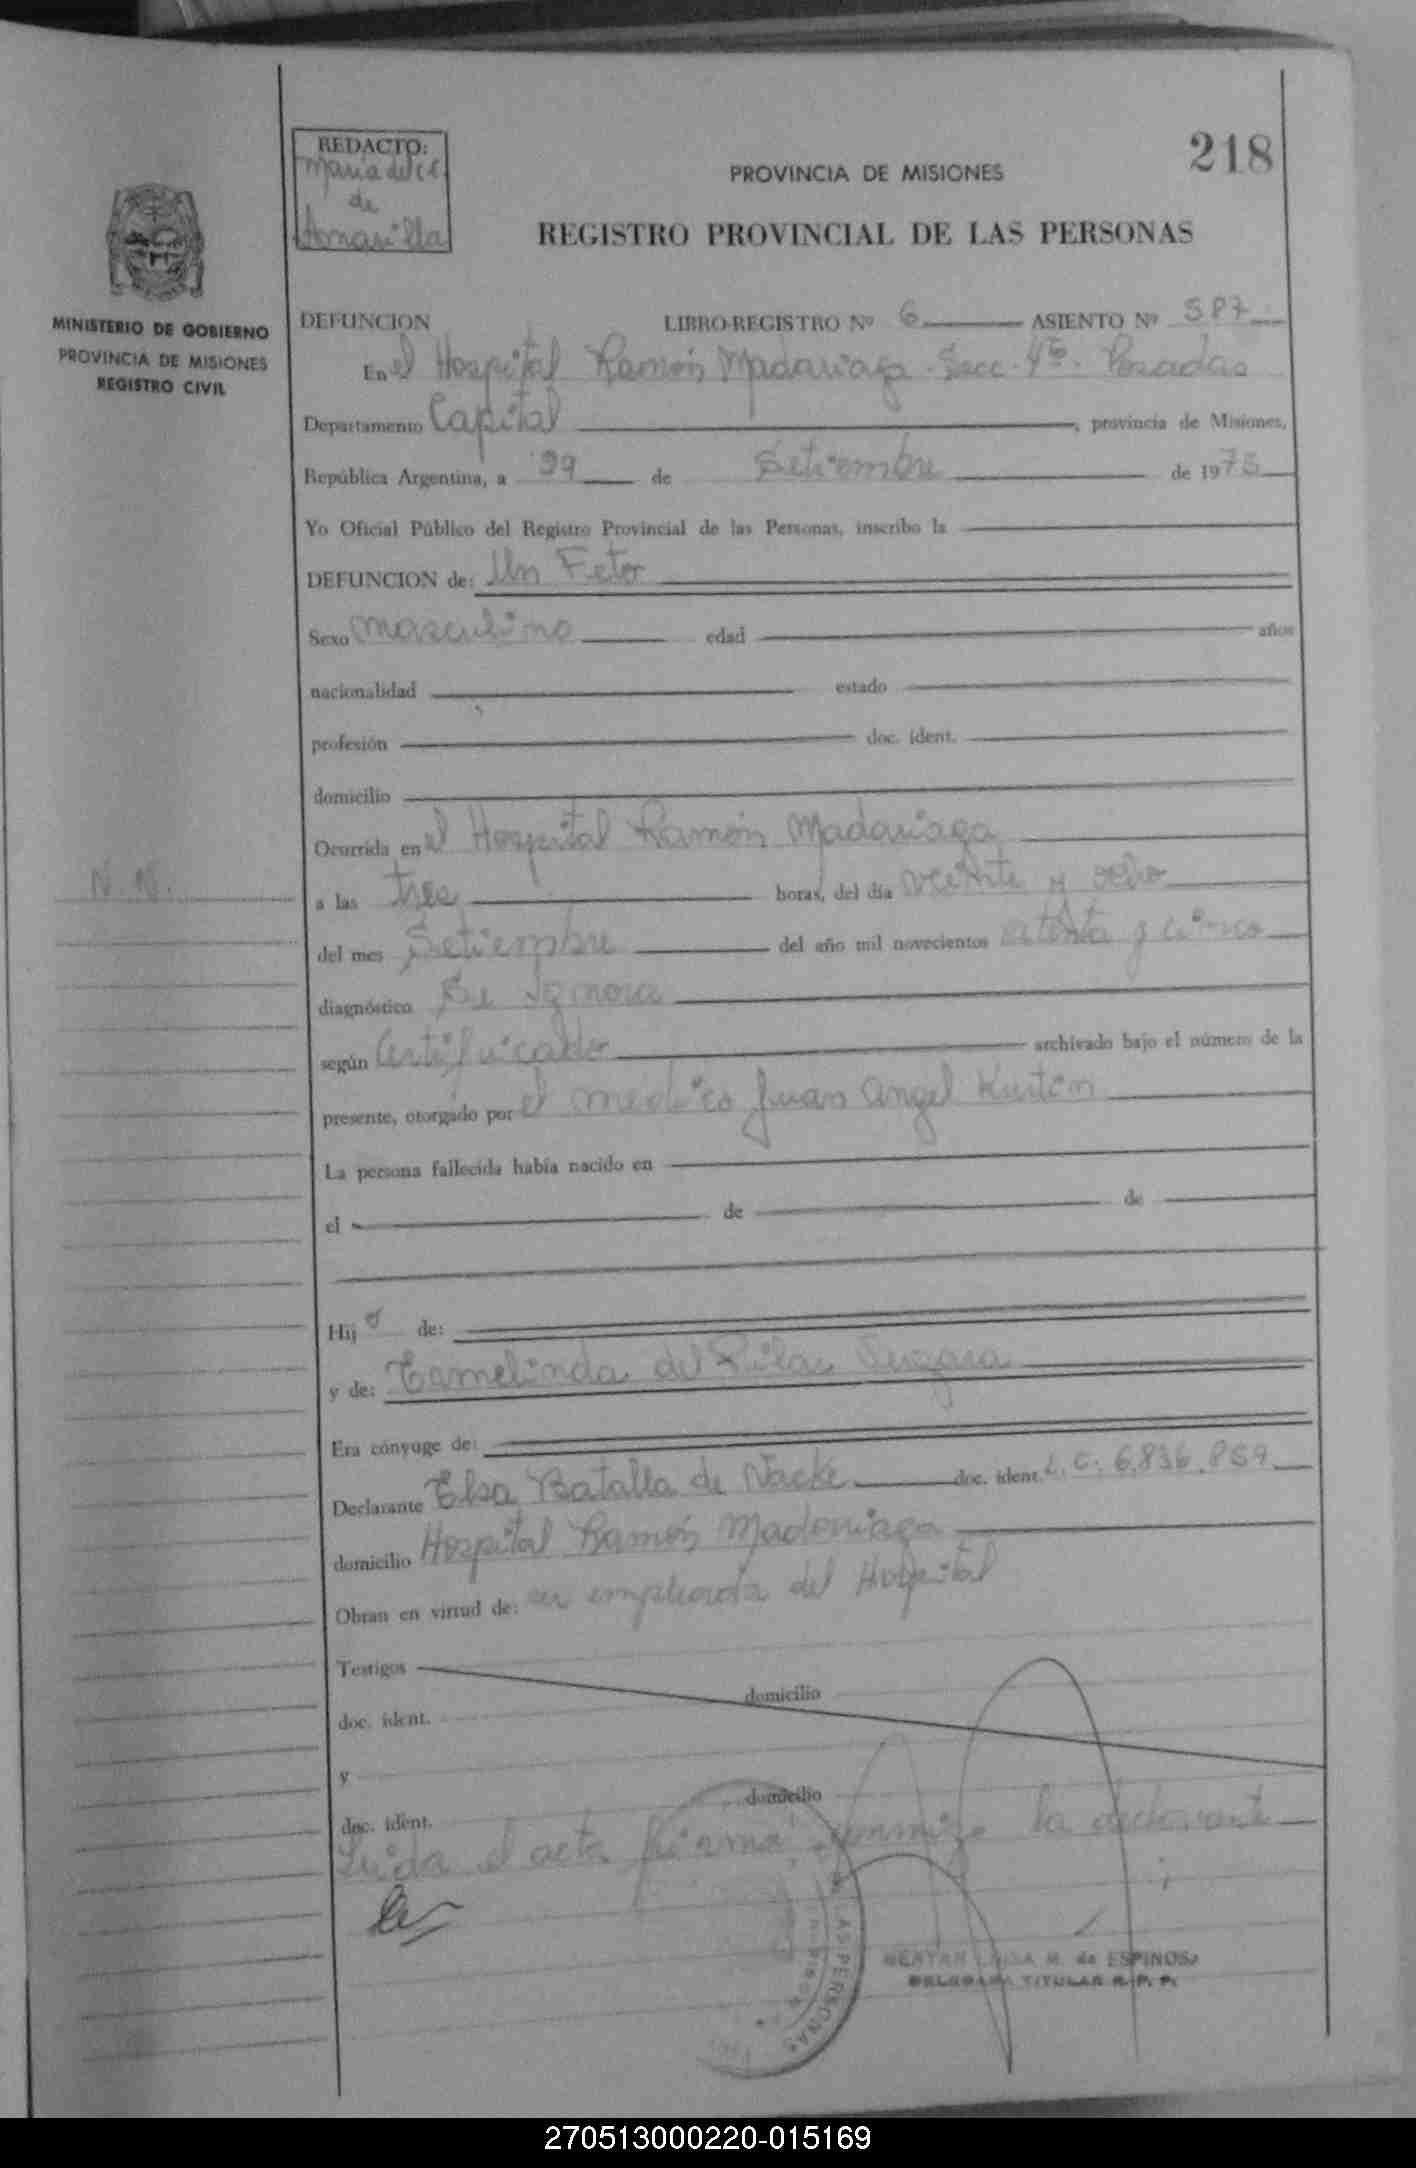 218
REDACTO:
Maria del C.
de
Amarilla
PROVINCIA DE MISIONES
REGISTRO PROVINCIAL DE LAS PERSONAS
MINISTERIO DE GOBIERNO
PROVINCIA DE MISIONES
REGISTRO CIVIL
DEFUNCION LIBRO-REGISTRO Nº 6 ASIENTO Nº 587
En el Hospital Ramón Madariaga - Secc. 4ta. Posadas
Departamento Capital, provincia de Misiones,
República Argentina, a 29 de Setiembre de 1975
Yo Oficial Público del Registro Provincial de las Personas, inscribo la
DEFUNCION de: Un Feto
Sexo masculino edad años
nacionalidad estado
profesión doc. ident.
domicilio
Ocurrida en el Hospital Ramón Madariaga
N.N.
a las tres horas, del día veinte y ocho
del mes Setiembre del año mil novecientos setenta y cinco
diagnóstico Se Ignora
según Certificado archivado bajo el número de la
presente, otorgado por el medico Juan Angel
La persona fallecida había nacido en
el de de
Hijo de:
y de: Ermelinda del Pilar
Era cónyuge de:
Declarante Elsa Batalla de Nacke doc. ident. L.C. 6.836.859
domicilio Hospital Ramón Madariaga
Obran en virtud de: ser empleada del Hospital
Testigos
domicilio
doc. ident.
y
domicilio
doc. ident.
Leida el acta firma conmigo la declarante
LAS PERSONAS
LUISA M. de ESPINOSA
DELEGADA TITULAR R. P. P.
270513000220-015169